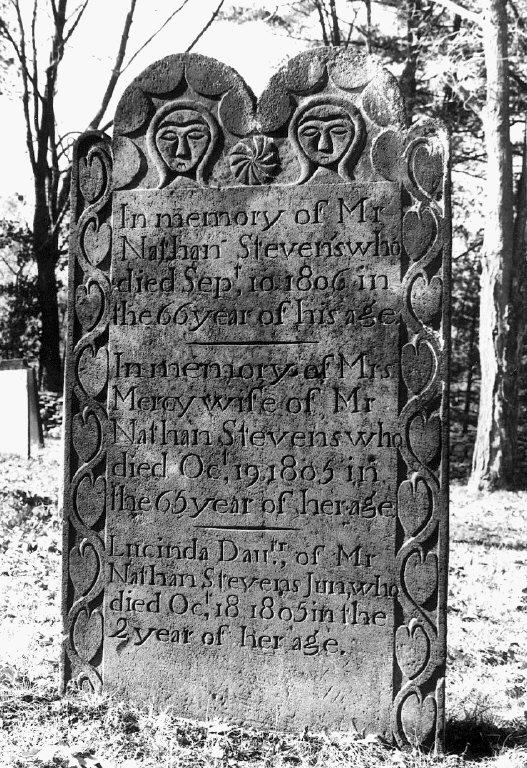 In memory of Mr
Nathan Stevens who
died Sept. 10. 1806 in
the 66 year of his age.
In memory of Mrs
Mercy wife of Mr
Nathan Stevens who
died Oct. 19. 1805 in
the 65 year of her age.
Lucinda Dautr., of Mr
Nathan Stevens Jun, who
died Oct. 18 1805 in the
2 year of her age.